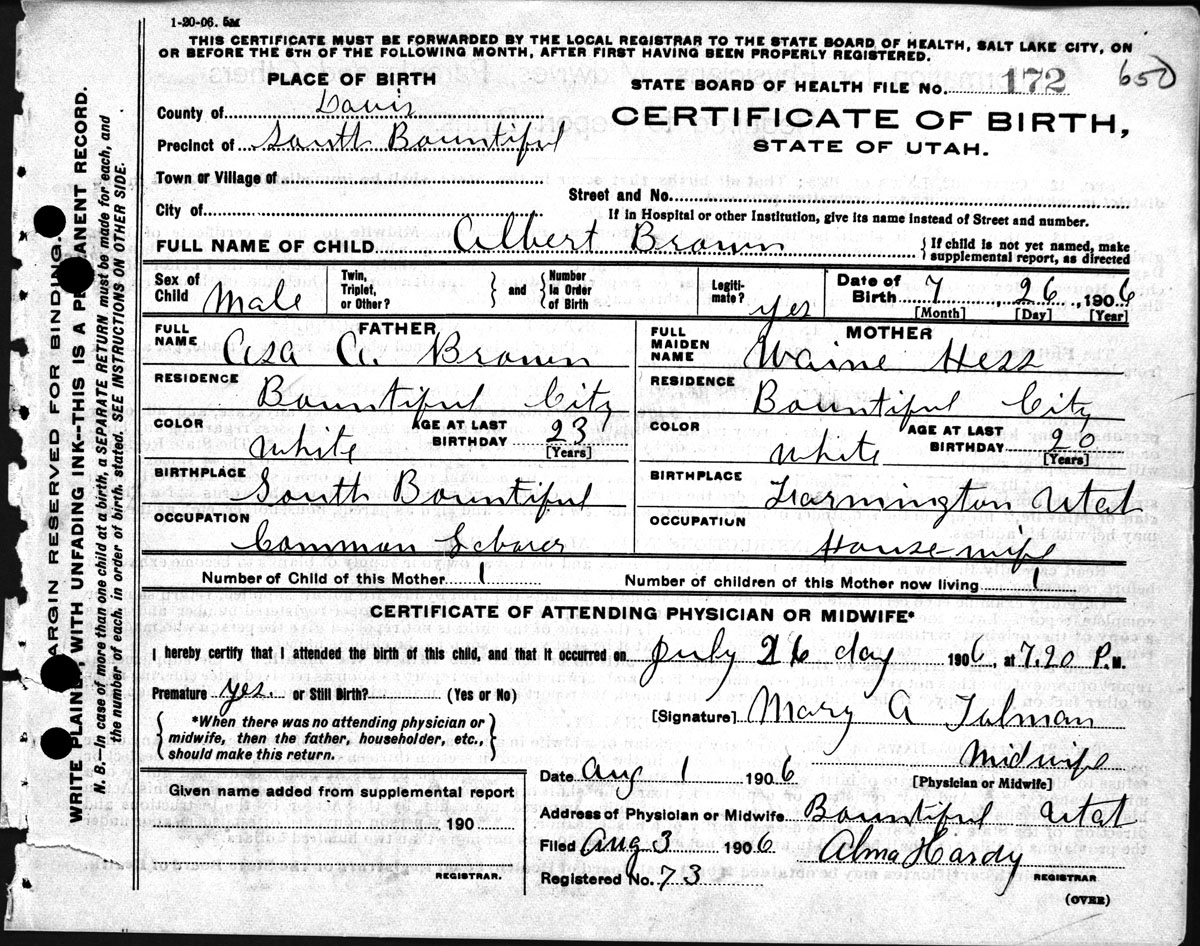 1-20-06. 5M
THIS CERTIFICATE MUST BE FORWARDED BY THE LOCAL REGISTRAR TO THE STATE BOARD OF HEALTH, SALT LAKE CITY, ON
OR BEFORE THE 5TH OF THE FOLLOWING MONTH, AFTER FIRST HAVING BEEN PROPERLY REGISTERED.
PLACE OF BIRTH
County of Davis
Precinct of South Bountiful
Town or Village of
City of
STATE BOARD OF HEALTH FILE No. 172 650
CERTIFICATE OF BIRTH,
STATE OF UTAH.
Street and No.
If in Hospital or other Institution, give its name instead of Street and number.
FULL NAME OF CHILD Albert Brown { If child is not yet named, make
supplemental report, as directed
Sex of Child Male
Twin, Triplet, or Other? } and { Number In Order of Birth
Legiti-mate? yes
Date of Birth 7, 26, 1906
[Month] [Day] [Year]
FATHER
FULL NAME Asa A. Brown
RESIDENCE Bountiful City
COLOR White AGE AT LAST BIRTHDAY 23 [Years]
BIRTHPLACE South Bountiful
OCCUPATION Common Laborer
MOTHER
FULL MAIDEN NAME Waine Hess
RESIDENCE Bountiful City
COLOR White AGE AT LAST BIRTHDAY 20 [Years]
BIRTHPLACE Farmington Utah
OCCUPATION House-wife
Number of Child of this Mother 1 Number of children of this Mother now living 1
CERTIFICATE OF ATTENDING PHYSICIAN OR MIDWIFE*
I hereby certify that I attended the birth of this child, and that it occurred on July 26 day 1906, at 7.20 P.M.
Premature yes. or Still Birth? (Yes or No)
{ *When there was no attending physician or
midwife, then the father, householder, etc.,
should make this return. }
[Signature] Mary A Tolman
Midwife
[Physician or Midwife]
Date Aug 1 1906
Address of Physician or Midwife Bountiful Utah
Filed Aug 3 1906 Alma Hardy
REGISTRAR
Registered No. 73
(OVER)
Given name added from supplemental report
190
REGISTRAR.
MARGIN RESERVED FOR BINDING.
WRITE PLAINLY, WITH UNFADING INK--THIS IS A PERMANENT RECORD.
N. B.—In case of more than one child at a birth, a SEPARATE RETURN must be made for each, and
the number of each, in order of birth, stated. SEE INSTRUCTIONS ON OTHER SIDE.